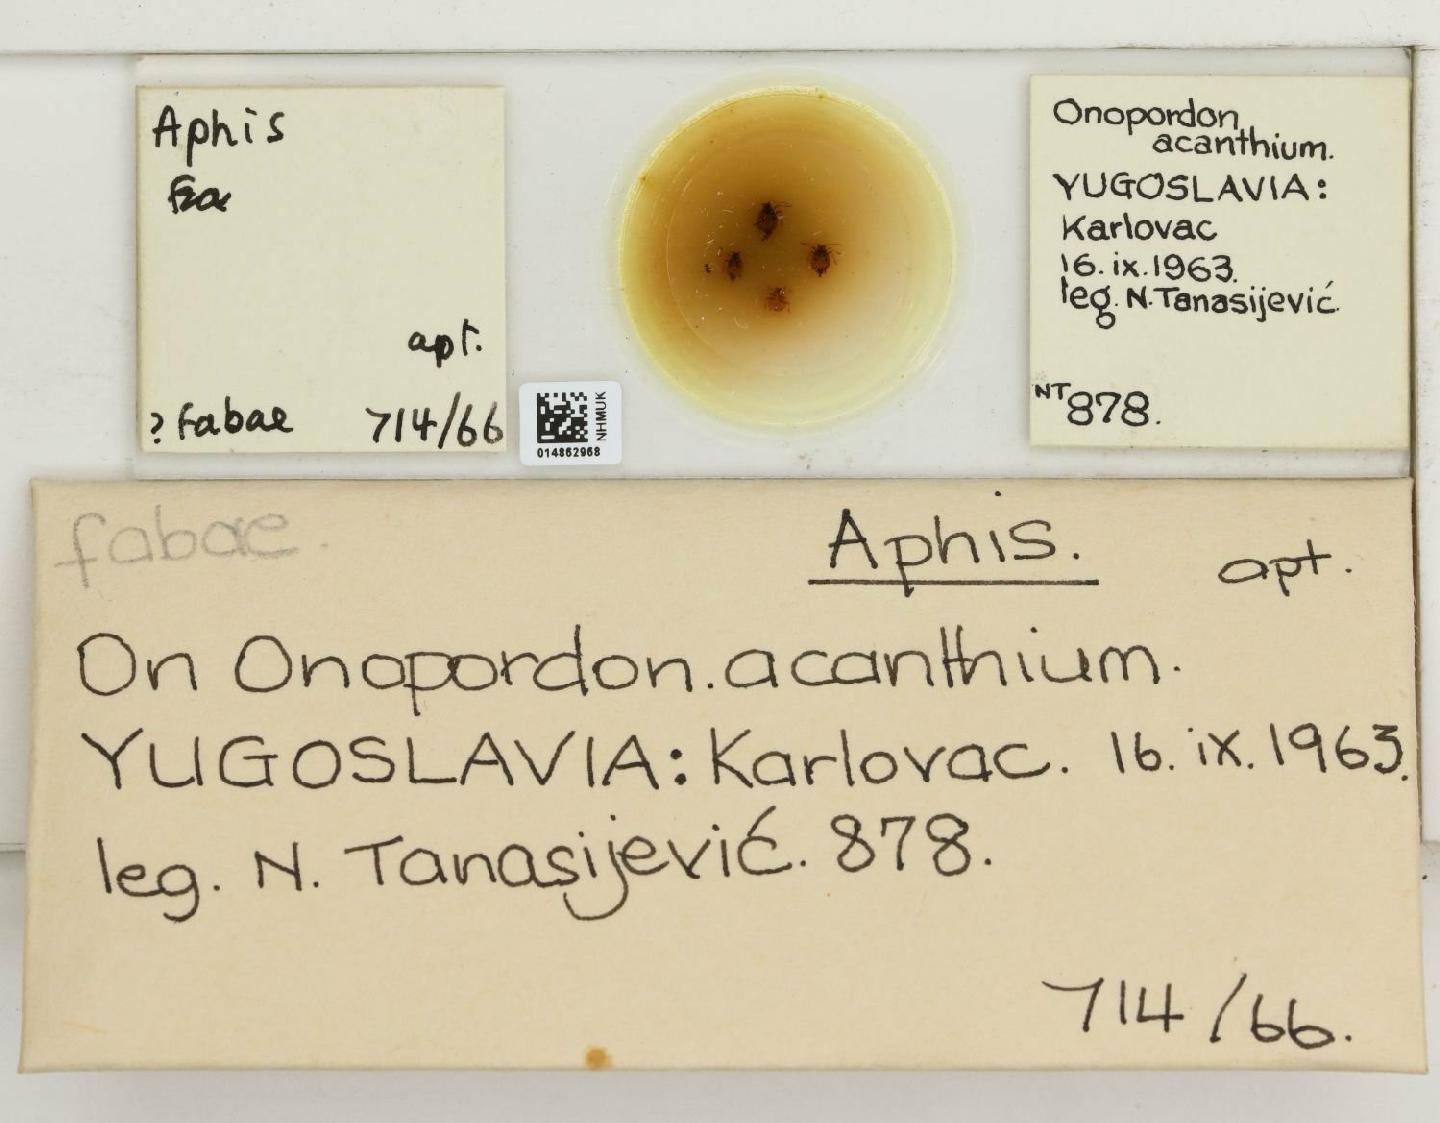 Aphis
apt.
? fabae 714/66
NHMUK
014862968
Onopordon
acanthium.
YUGOSLAVIA:
Karlovac
16.ix.1963.
leg. N.Tanasijević.
NT 878.
fabae.
Aphis. apt.
On Onopordon.acanthium.
YUGOSLAVIA: Karlovac. 16.ix.1963.
leg. N. Tanasijević. 878.
714/66.